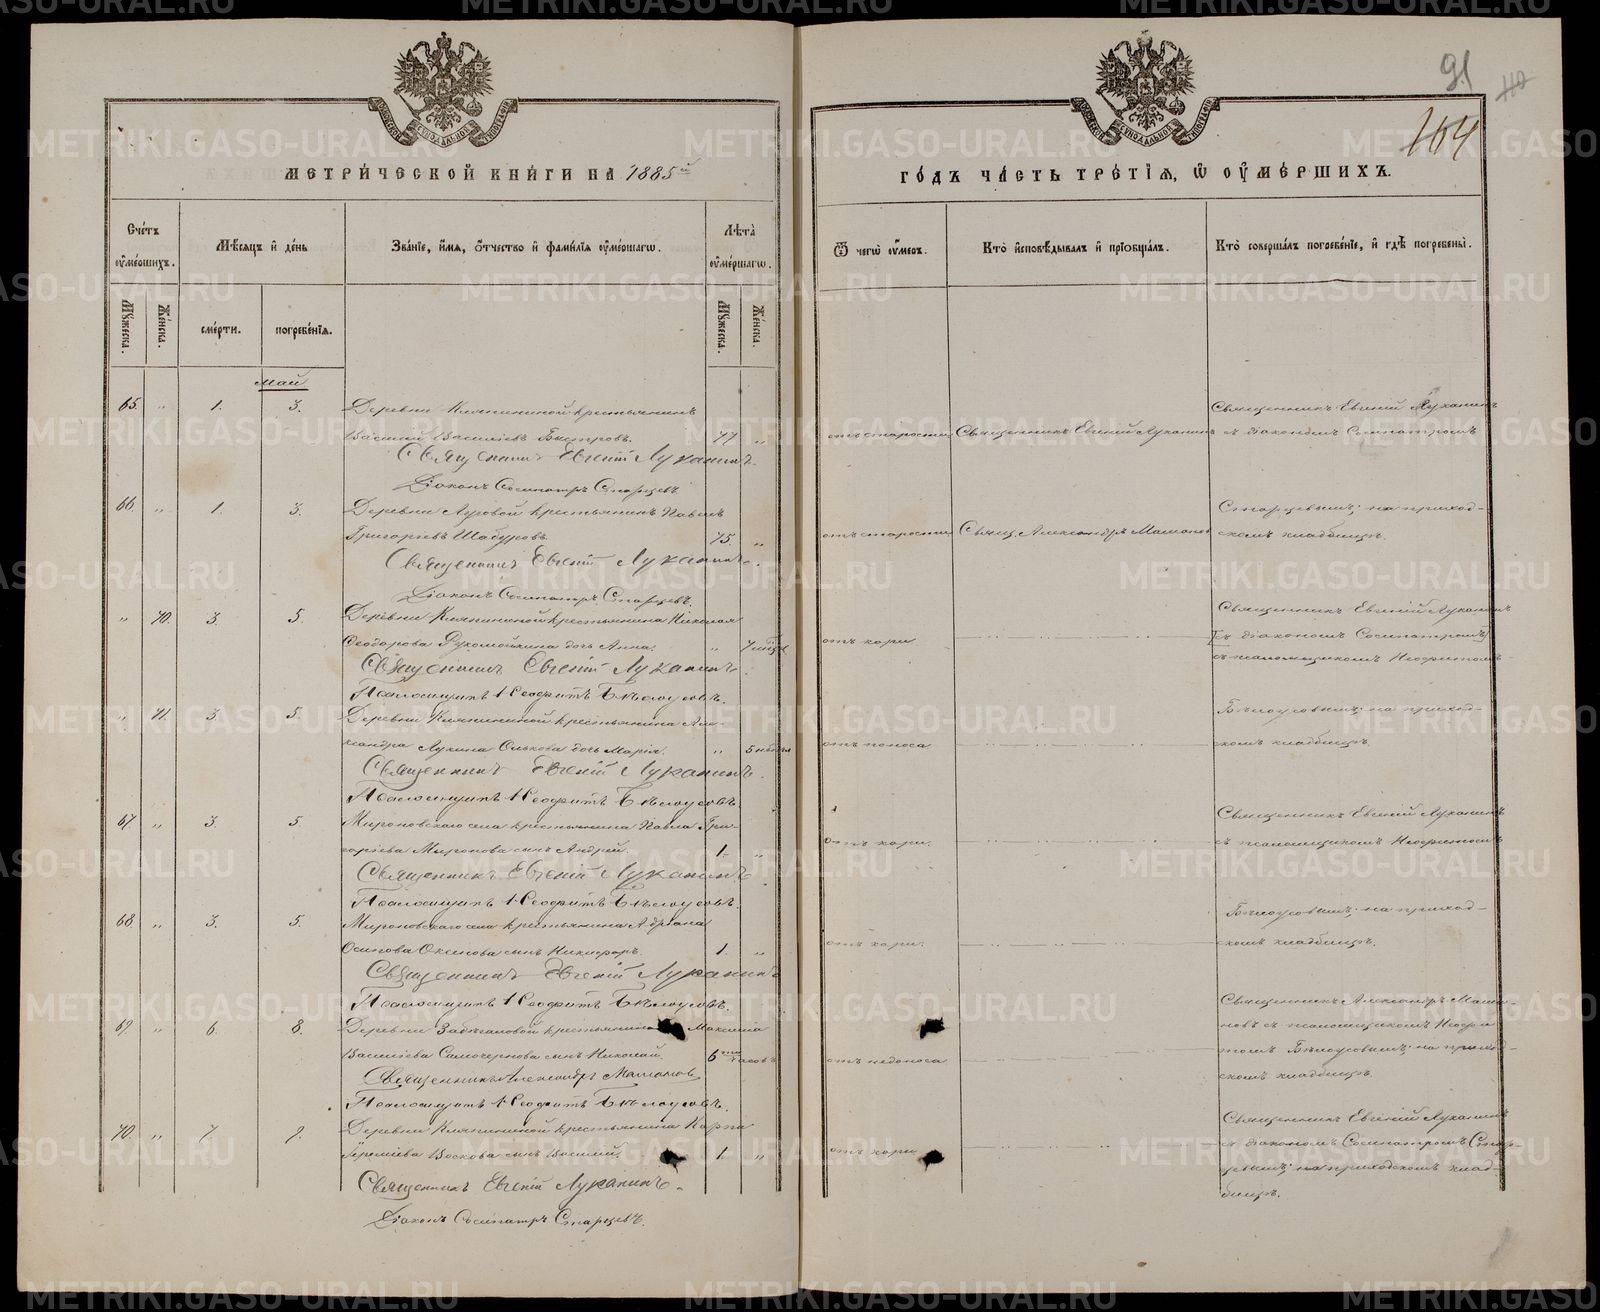 91
164
МЕТРИЧЕСКОЙ КНИГИ НА 1885й
ГОДЪ ЧАСТЬ ТРЕТІЯ, Ѿ ОУМЕРШИХЪ.
Счетъ оумершихъ.
Мѣсяцъ и день
Званіе, имя, отчество и фамилія оумершагѡ.
Лѣта оумершагѡ.
Ѿ чегѡ оумеръ.
Кто исповѣдывалъ и пріобщалъ.
Кто совершалъ погребеніе, и гдѣ погребены.
Мужеска.
Женска.
смерти.
погребенія.
Мужеска.
Женска.
Май
65. " 1. 3. Деревни Кляпининой крестьянинъ
Василій Васильевъ Быстровъ. 77 " отъ старости Священникъ Евгеній Луканинъ
Священникъ Евгеній Луканинъ
Діаконъ Сосипатръ Старцевъ
Священникъ Евгеній Луканинъ
съ діакономъ Сосипатромъ
66. " 1. 3. Деревни Луговой крестьянинъ Павелъ
Григорьевъ Шабуровъ 75. " отъ старости Свящ. Александръ
Священникъ Евгеній Луканинъ.
Діаконъ Сосипатръ Старцевъ.
Старцевымъ; на приход-
скомъ кладбищѣ.
" 70. 3. 5. Деревни Кляпининой крестьянина Николая
Феодорова дочь Анна. " 7 отъ кори
Священникъ Евгеній Луканинъ.
Псаломщикъ Неофитъ Бѣлоусовъ.
Священникъ Евгеній Луканинъ
съ діакономъ Сосипатромъ
съ псаломщикомъ Неофитомъ
" 71. 3. 5. Деревни Кляпининой крестьянина Але-
ксандра Лукина дочь Марія. " 5 отъ поноса
Священникъ Евгеній Луканинъ.
Псаломщикъ Неофитъ Бѣлоусовъ.
Бѣлоусовымъ; на приход-
скомъ кладбищѣ.
67. " 3. 5. Мироновскаго села крестьянина Павла Гри-
горьева Миронова сынъ Андрей. 1. " отъ кори.
Священникъ Евгеній Луканинъ
Псаломщикъ Неофитъ Бѣлоусовъ.
Священникъ Евгеній Луканинъ
съ псаломщикомъ Неофитомъ
68. " 3. 5. Мироновскаго села крестьянина Адріана
Осипова сынъ Никифоръ. 1. " отъ кори.
Священникъ Евгеній Луканинъ
Псаломщикъ Неофитъ Бѣлоусовъ.
Бѣлоусовымъ; на приход-
скомъ кладбищѣ.
69. " 6. 8. Деревни крестьянина Максима
Васильева Самочернова сынъ Николай. 6ти часовъ отъ недоноса
Священникъ Александръ
Псаломщикъ Неофитъ Бѣлоусовъ.
Священникъ Александръ
съ псаломщикомъ Неофи
томъ Бѣлоусовымъ; на приход-
скомъ кладбищѣ.
70. " 7. 9. Деревни Кляпининой крестьянина Карпа
сынъ Василій. 1. " отъ кори
Священникъ Евгеній Луканинъ.
Діаконъ Сосипатръ Старцевъ.
Священникъ Евгеній Луканинъ
съ діакономъ Сосипатромъ Стар-
цевымъ; на приходскомъ клад-
бищѣ.
METRIKI.GASO-URAL.RU